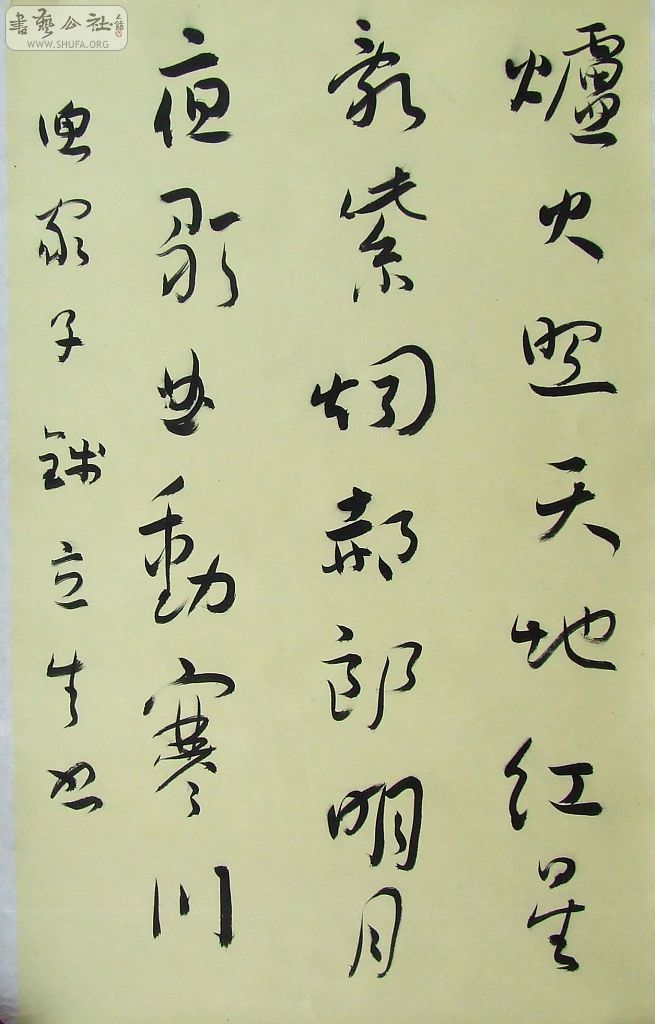 書藝公社
WWW.SHUFA.ORG
爐火照天地紅星
亂紫烟赧郎明月
夜歌曲動寒川
漁家子錢立生书